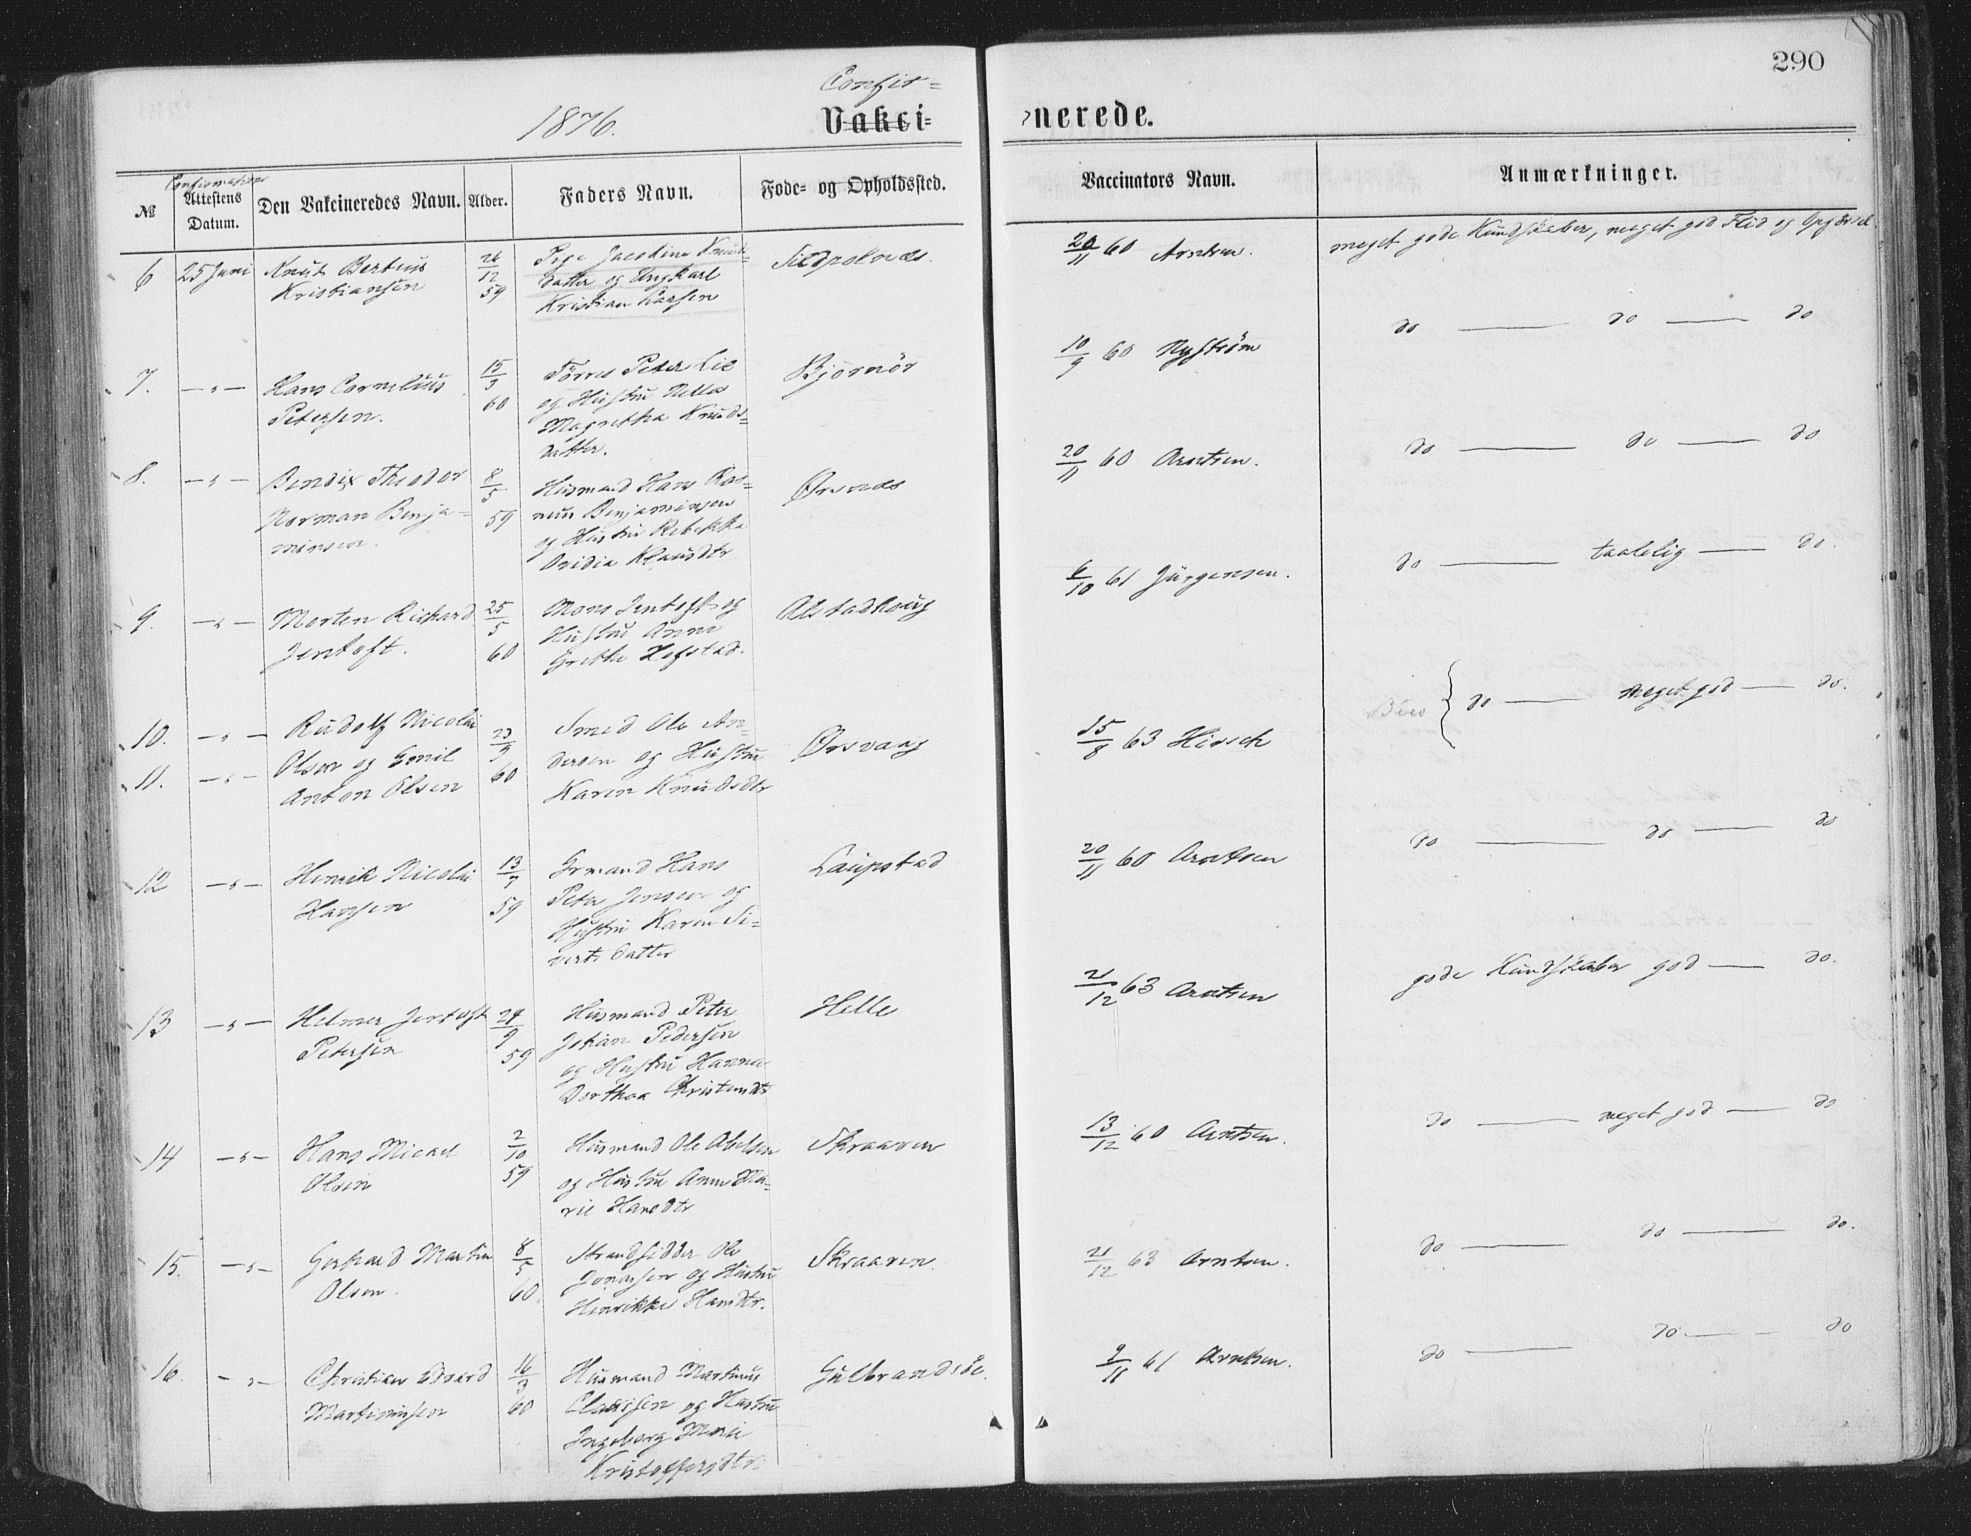 290
1876.
Confir=
Vakci=
nerede.
Confirmations
№
Attestens
Datum.
Den Vakcineredes Navn.
Alder.
Faders Navn.
Føde= og Opholdssted.
Vaccinators Navn.
Anmærkninger.
6 25 Juni Knut Berteus 26/12 Pige Jacobine Knuts= 20/11 60 Arntsen. meget gode Kundskaber, meget god Flid og
Kristiansen 59 datter og Ungkarl
Kristian Larsen
7. —„— Hans Cornelius 15/3 Törres Peter Lie Bjørnör 10/9 60 Nyström do — do — do
Petersen. 60 og Hustru
Magretha Knuds=
datter.
8. —„— Bendix Theodor 8/5 Husmand Hans Ras= Ørsnes 20/11 60 Arntsen. do — do — do
Norman Benja= 59 mus Benjaminsen
minsen. og Hustru Rebekka
Ovidia Klausdtr
9. —„— Morten Rikhard 25/5 Mons Jentoft og Alstadhoug 6/10 61 Jürgensen. do — taalelig — do.
Jentoft. 60 Hustru Anne
Grethe Hofstad.
10. —„— Rudolf Nicolai 23/9 Smed Ole An= Ørsvaag 15/8 63 Hirsch do — meget god — do.
11. —„— Olsen og Emil 60 dersen og Hustru
Anton Olsen Karen Knudsdtr
12 —„— Henrik Nicolai 13/7 Grmand Hans Laupstad 20/11 60 Arntsen do — do — do
Hansen 59 Peter Jensen og
Hustru Karen Si=
verts datter
13 —„— Helmer Jentoft 24/9 Husmand Peter Helle 21/12 63 Arntsen gode Kundskaber god — do.
Petersen 59 Johan Pedersen
og Hustru Hanna
Dorthea Kristensdtr
14 —„— Hans Mickel 2/10 Husmand Ole Abelsen Skraaven 13/12 60 Arntsen. do — meget god — do
Olsen 59 og Hustru Anne Ma=
rie Hansdtr
15. —„— Gerhard Martin 8/5 Strandsidder Ole Skraaven. 21/12 63 Arntsen. do — do — do.
Olsen. 60. Jonassen og Hustru
Henrikke Hansdtr.
16. —„— Christian Edvard 16/3 Husmand Martinus Gulbrandsöe. 9/11 61 Arntsen. do — do — do
Martinussen 60 Claussen og Hustru
Ingeborg Marie
Kristoffersdtr.